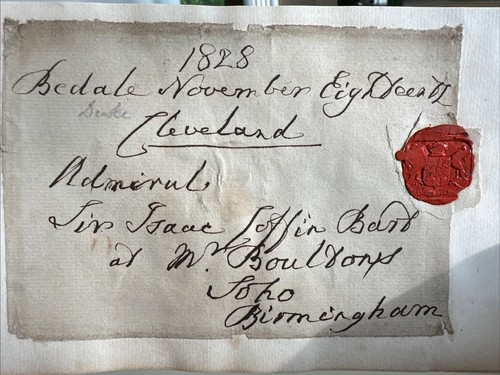 1828
Bedale November Eighteenth
Duke
Cleveland
Admiral
Sir Isaac Coffin Bart
at Mr. Boultons
Soho
Birmingham